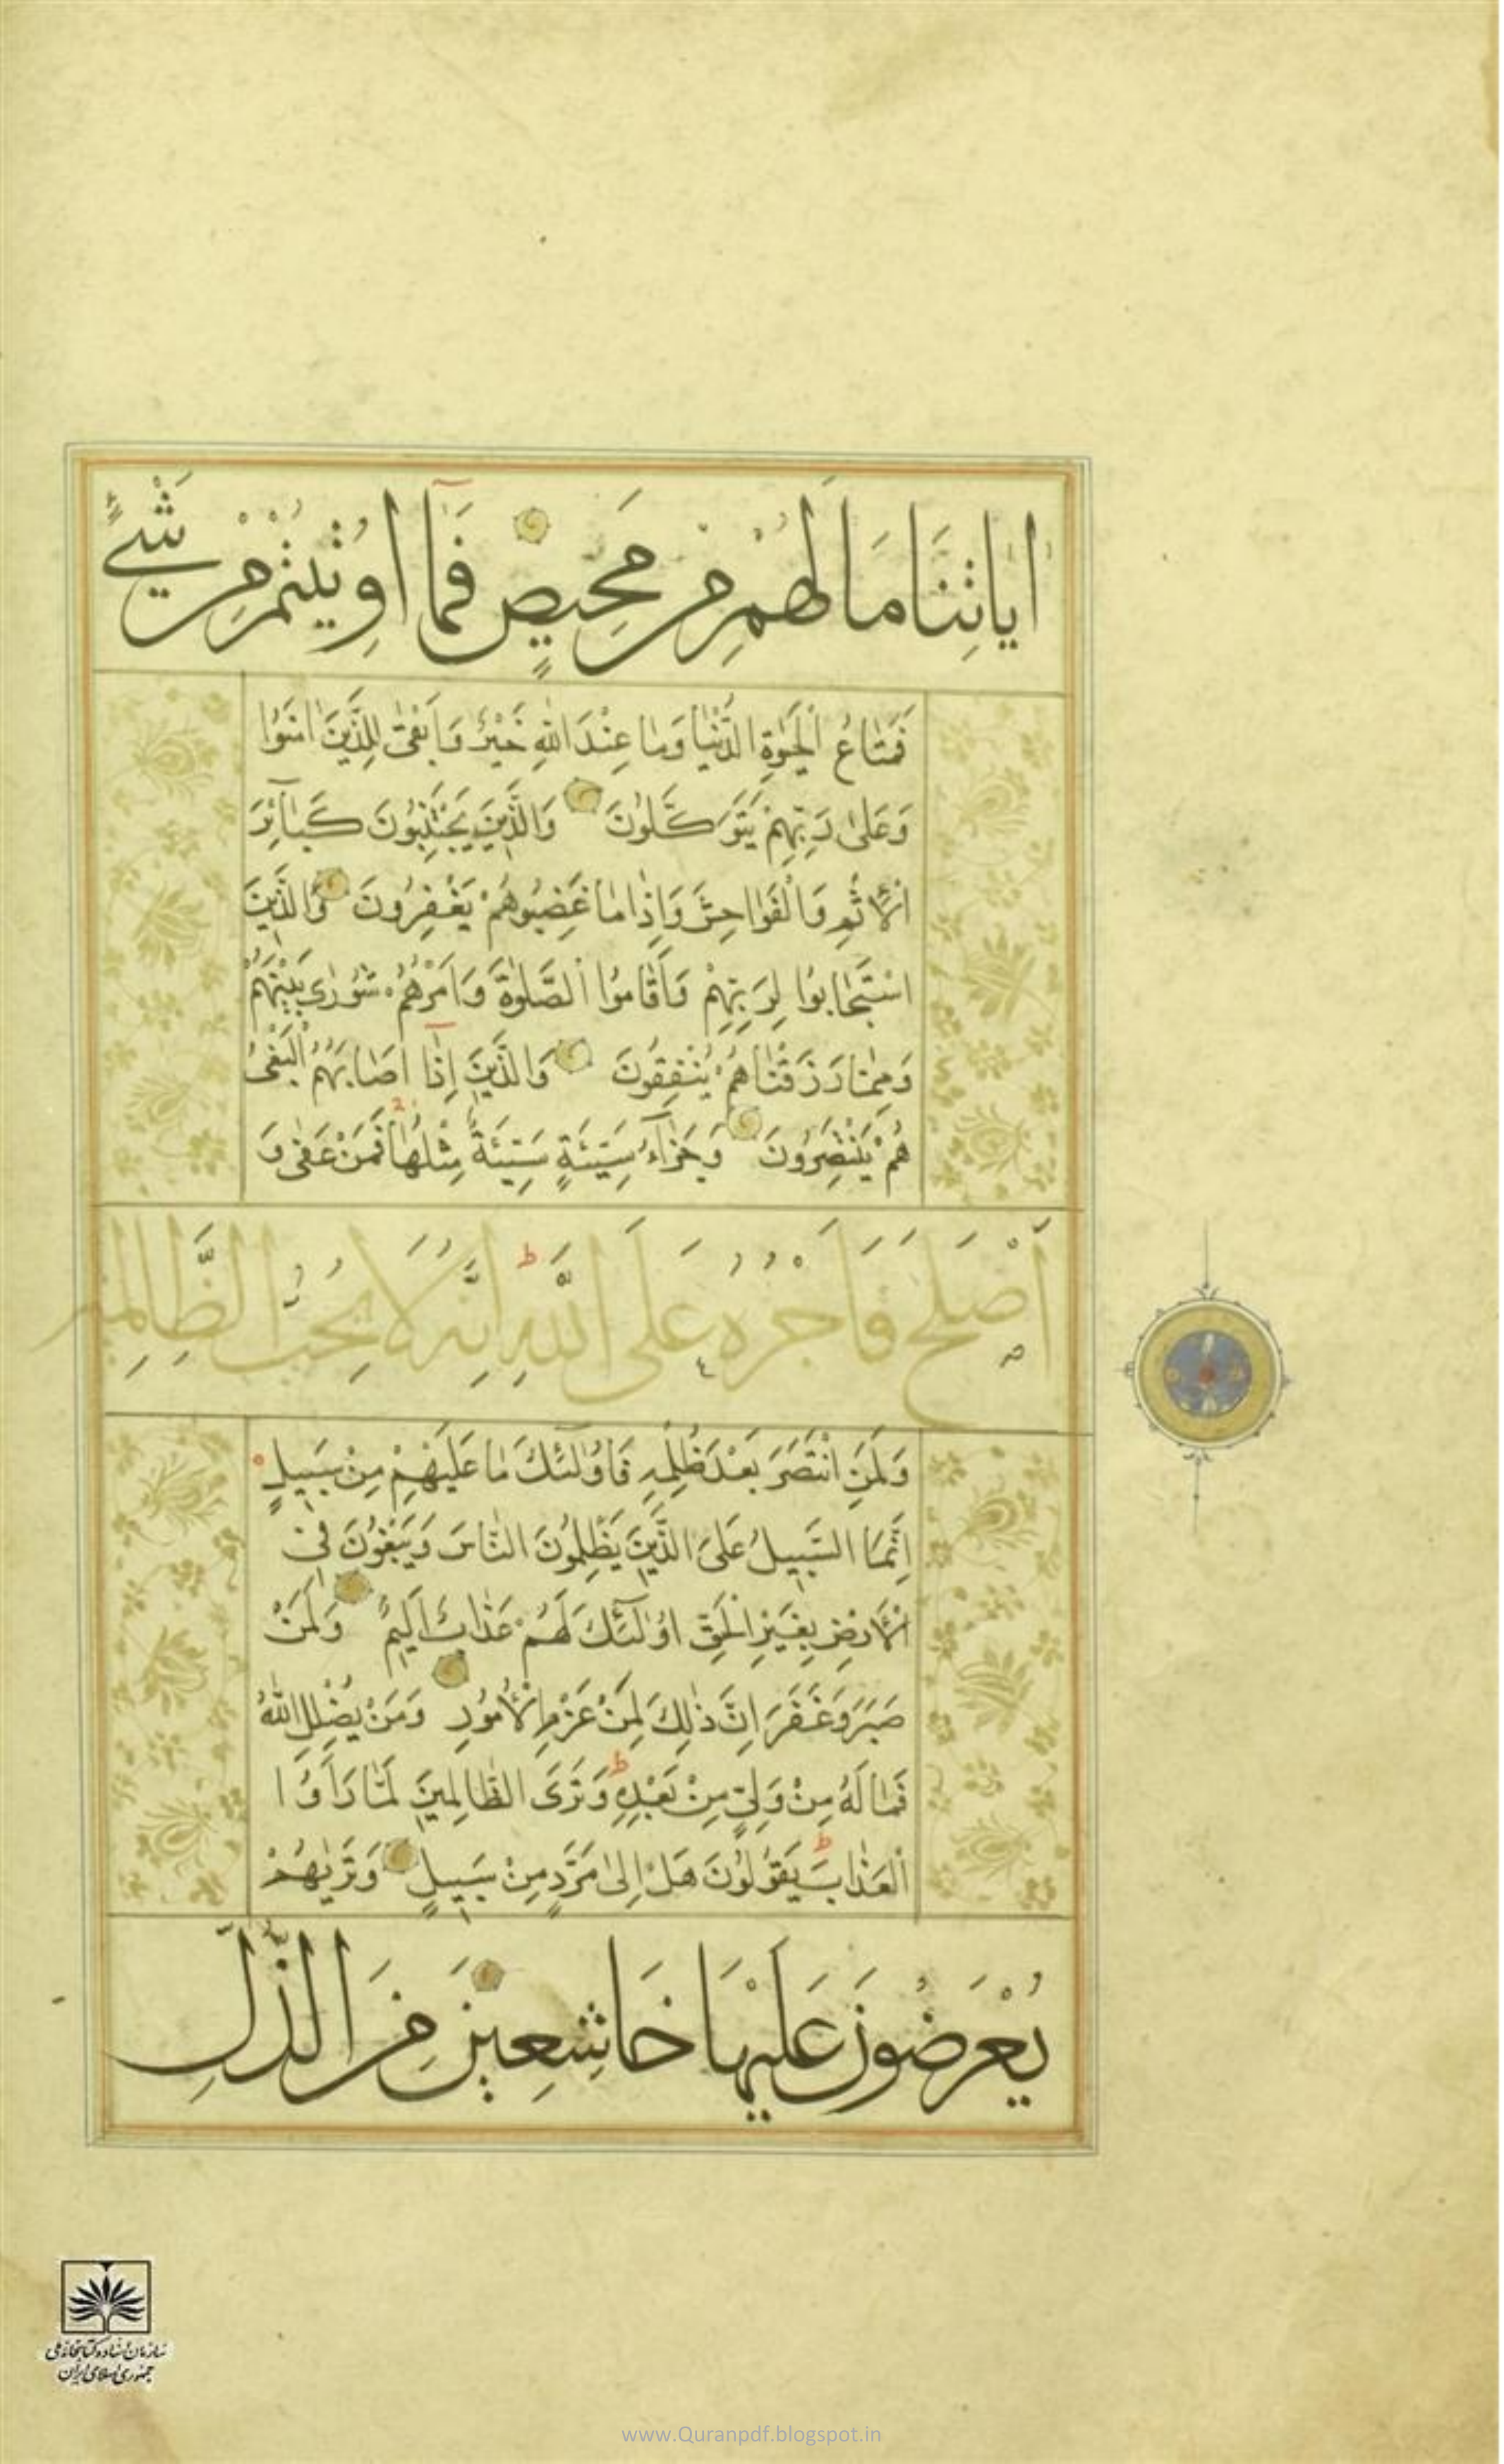 اٰيَاتِنَا مَا لَهُمْ مِنْ مَحِيصٍ فَمَٓا اُوتِيتُمْ مِنْ شَيْءٍ
فَمَتَاعُ الْحَيٰوةِ الدُّنْيَا وَمَا عِنْدَ اللّٰهِ خَيْرٌ وَاَبْقٰى لِلَّذِينَ اٰمَنُوا
وَعَلٰى رَبِّهِمْ يَتَوَكَّلُونَ وَالَّذِينَ يَجْتَنِبُونَ كَبَآئِرَ
الْاِثْمِ وَالْفَوَاحِشَ وَاِذَا مَا غَضِبُوا هُمْ يَغْفِرُونَ وَالَّذِينَ
اسْتَجَابُوا لِرَبِّهِمْ وَاَقَامُوا الصَّلٰوةَ وَاَمْرُهُمْ شُورٰى بَيْنَهُمْ
وَمِمَّا رَزَقْنَاهُمْ يُنْفِقُونَ وَالَّذِينَ اِذَٓا اَصَابَهُمُ الْبَغْىُ
هُمْ يَنْتَصِرُونَ وَجَزَآءُ سَيِّئَةٍ سَيِّئَةٌ مِثْلُهَا فَمَنْ عَفٰى وَ
اَصْلَحَ فَاَجْرُهُ عَلَى اللّٰهِ اِنَّهُ لَا يُحِبُّ الظَّالِمِينَ
وَلَمَنِ انْتَصَرَ بَعْدَ ظُلْمِهِ فَاُولٰٓئِكَ مَا عَلَيْهِمْ مِنْ سَبِيلٍ
اِنَّمَا السَّبِيلُ عَلَى الَّذِينَ يَظْلِمُونَ النَّاسَ وَيَبْغُونَ فِى
الْاَرْضِ بِغَيْرِ الْحَقِّ اُولٰٓئِكَ لَهُمْ عَذَابٌ اَلِيمٌ وَلَمَنْ
صَبَرَ وَغَفَرَ اِنَّ ذٰلِكَ لَمِنْ عَزْمِ الْاُمُورِ وَمَنْ يُضْلِلِ اللّٰهُ
فَمَا لَهُ مِنْ وَلِيٍّ مِنْ بَعْدِهِ ط وَتَرَى الظَّالِمِينَ لَمَّا رَاَوُا
الْعَذَابَ ط يَقُولُونَ هَلْ اِلٰى مَرَدٍّ مِنْ سَبِيلٍ وَتَرٰيهُمْ
يُعْرَضُونَ عَلَيْهَا خَاشِعِينَ مِنَ الذُّلِّ
سازمان اسناد و کتابخانه ملی
جمهوری اسلامی ایران
www.Quranpdf.blogspot.in